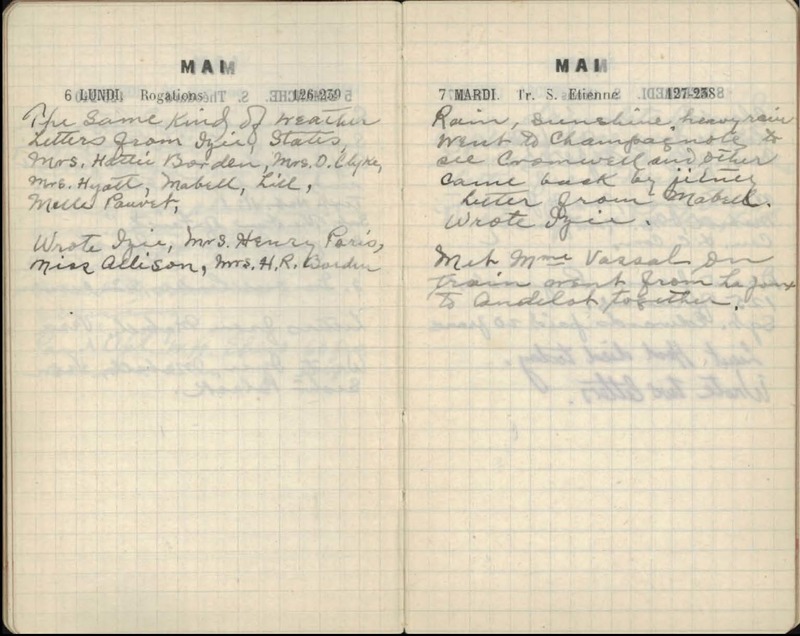 MAI
6 LUNDI. Rogations 126-239
The same kind of weather
Letters from Izie, States,
Mrs. Hattie Borden, Mrs. O. Clyke,
Mrs. Hyatt, Mabell, Lill,
Melle Pauvet,
Wrote Izie, Mrs. Henry Paris,
Miss Allison, Mrs. H. R. Borden
MAI
7 MARDI. Tr. S. Etienne 127-238
Rain, sunshine, heavy rain
Went to Champagnole to
see Cromwell and other
came back by jitney
Letter from Mabell.
Wrote Izie.
Met Mme Vassal on
train went from La Joux
to Andelot together.